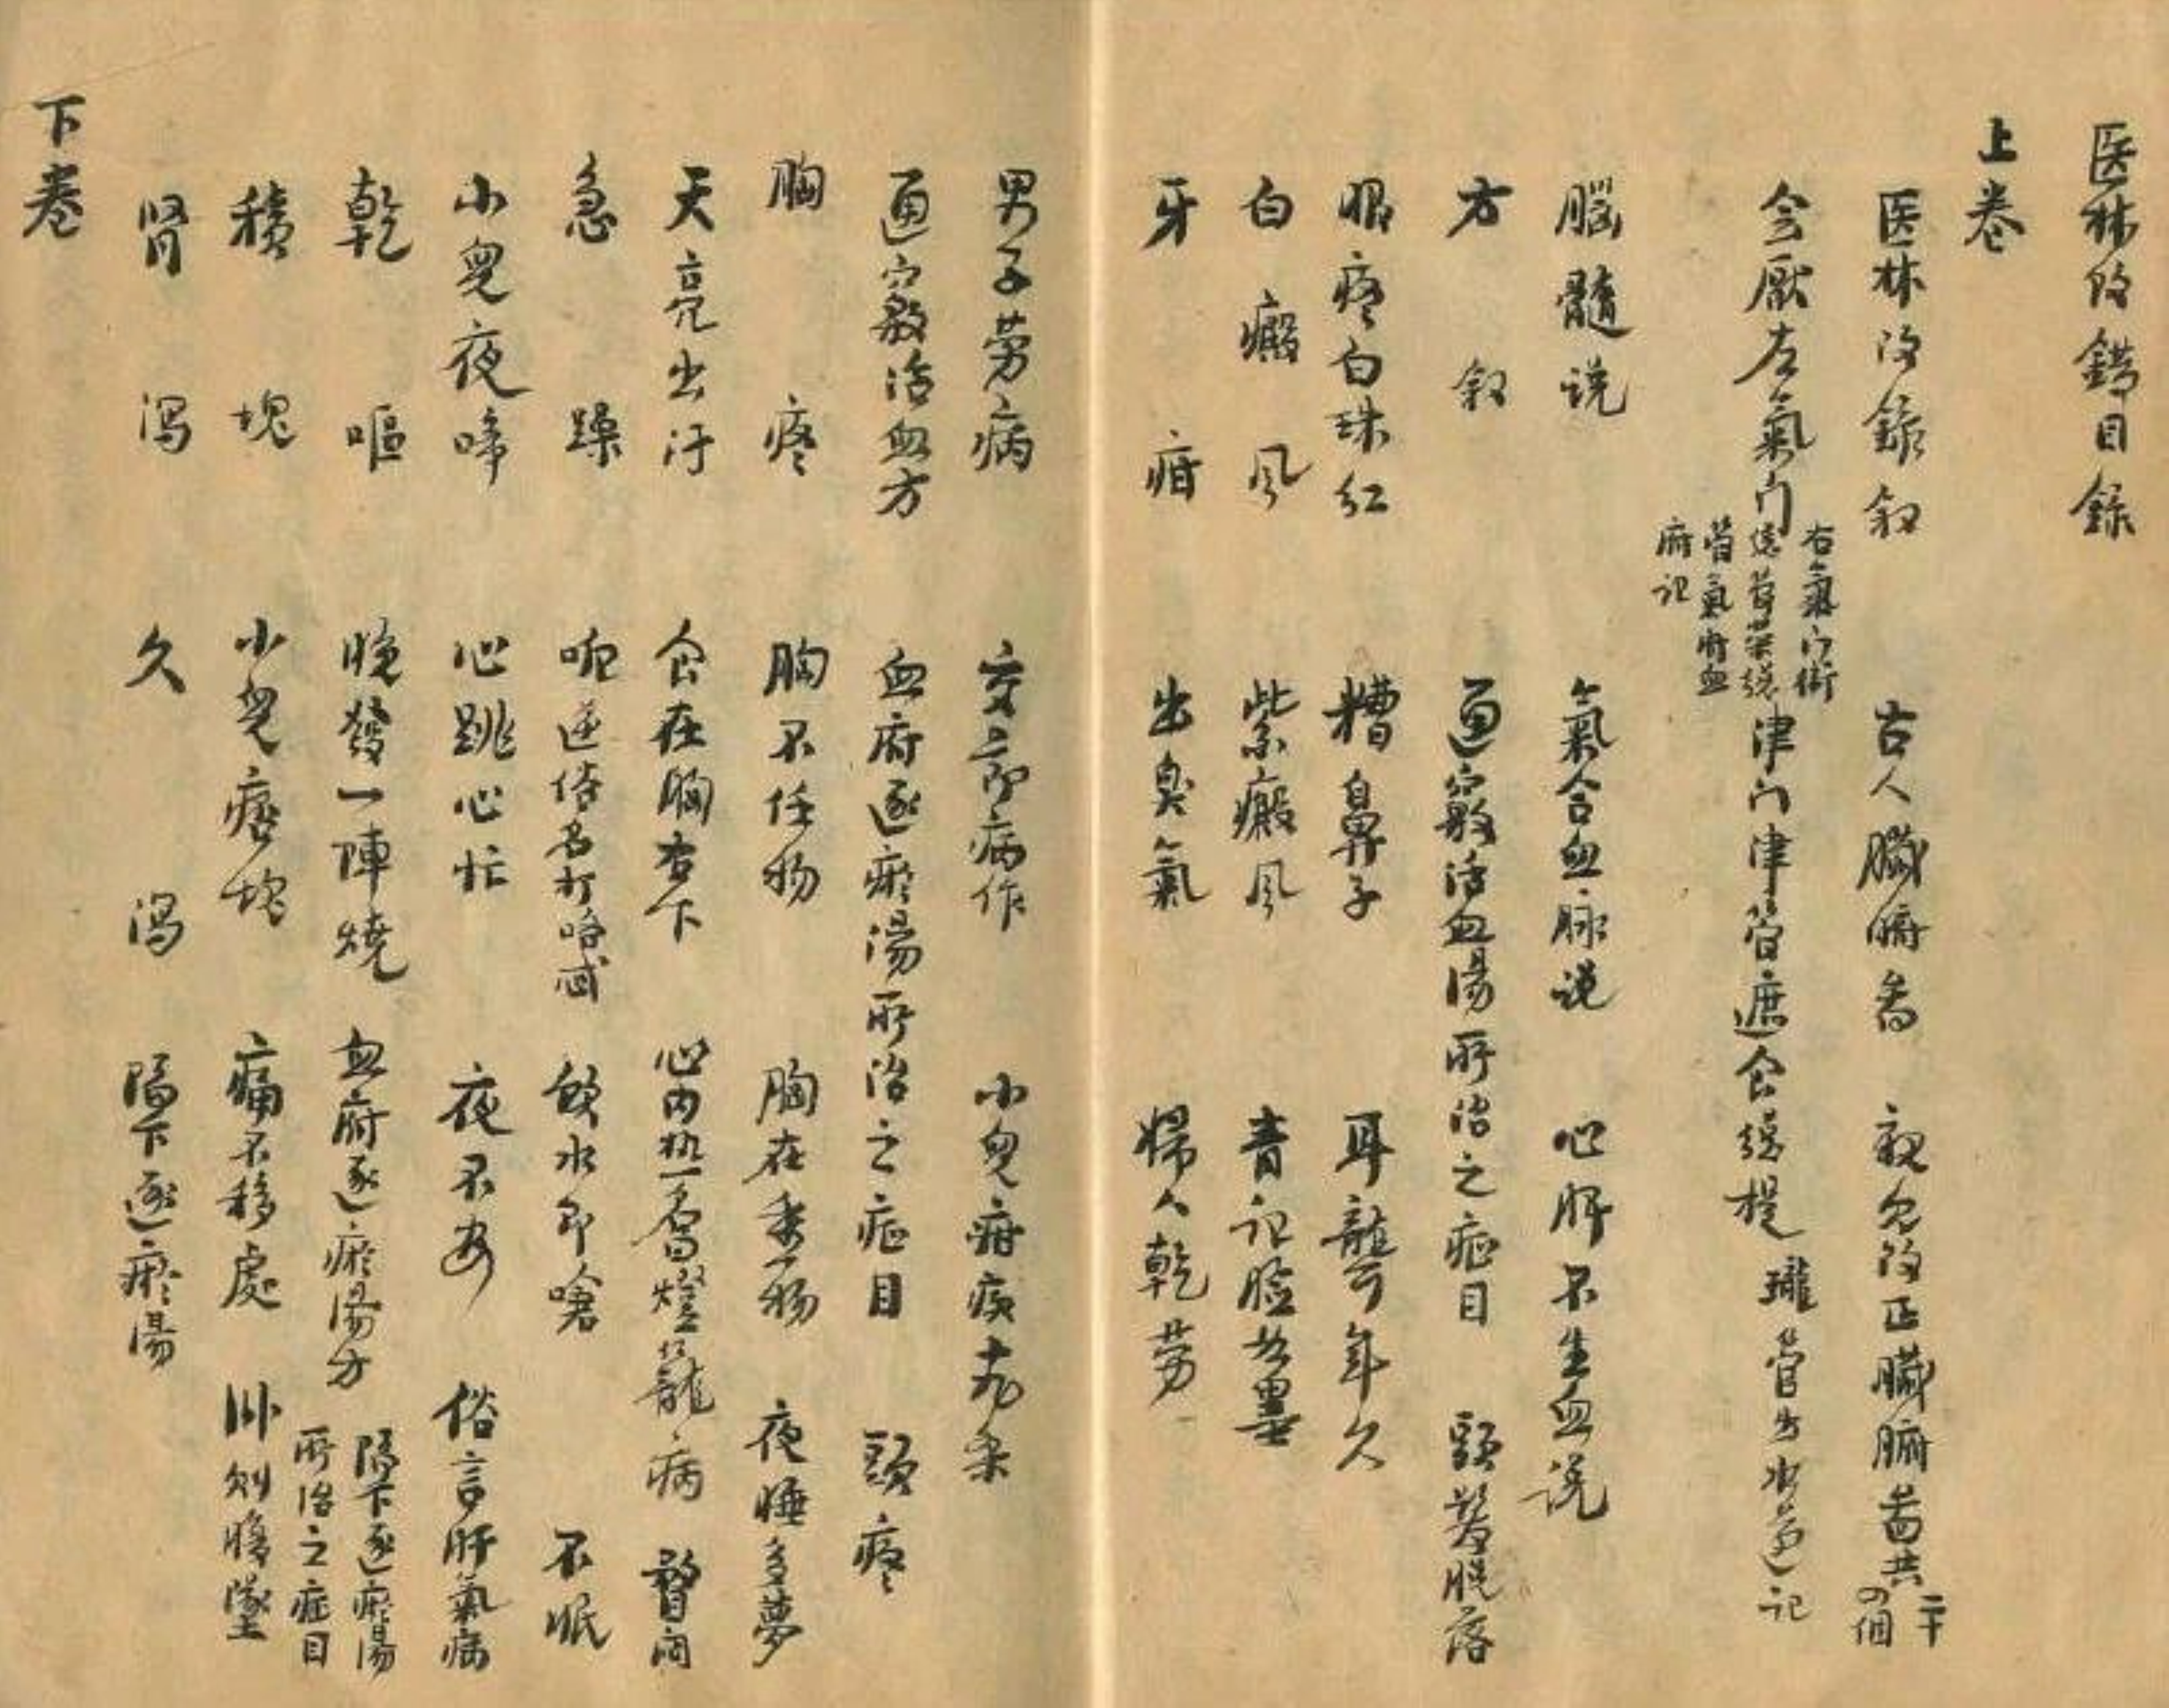 医林改錯目錄
上卷
医林改錯叙　古人臟腑圖　親見改正臟腑圖共二十四個
会厭左氣门右氣门衛總管荣總管氣府血府记津门津管遮食總提瓏管出水道记
腦髓说　氣合血脉说　心肝不生血说
方叙　通竅活血湯所治之症目　頭髮脱落
眼疼白珠红　糟鼻子　耳聾年久
白癜风　紫癜风　青记脸如墨
牙疳　出臭氣　婦人乾劳
男子劳病　交節病作　小兒疳疾十九条
通竅活血方　血府逐瘀湯所治之症目　頭疼
胸疼　胸不任物　胸任重物　夜睡多夢
天亮出汗　食在胸右下　心内热一名燈籠病　瞀闷
急躁　呃逆俗名打咯忒　飲水即嗆　不眠
小兒夜啼　心跳心忙　夜不安　俗言肝氣病
乾嘔　晚發一陣燒　血府逐瘀湯方　隔下逐瘀湯所治之症目
積塊　小兒痞塊　痛不移處　卧则腹墜
肾瀉　久瀉　隔下逐瘀湯
下卷